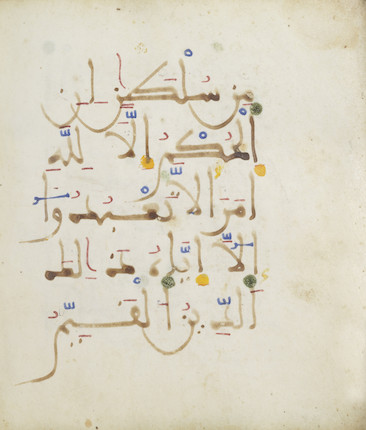 مِن سُلْطَٰنٍ إِنِ
اِ۬لْحُكْمُ إِلَّا لِلهِ
أَمَرَ أَلَّا تَعْبُدُوٓا
إِلَّآ إِيَّاهُ ذَٰلِكَ
اَ۬لدِّينُ اُ۬لْقَيِّمُ